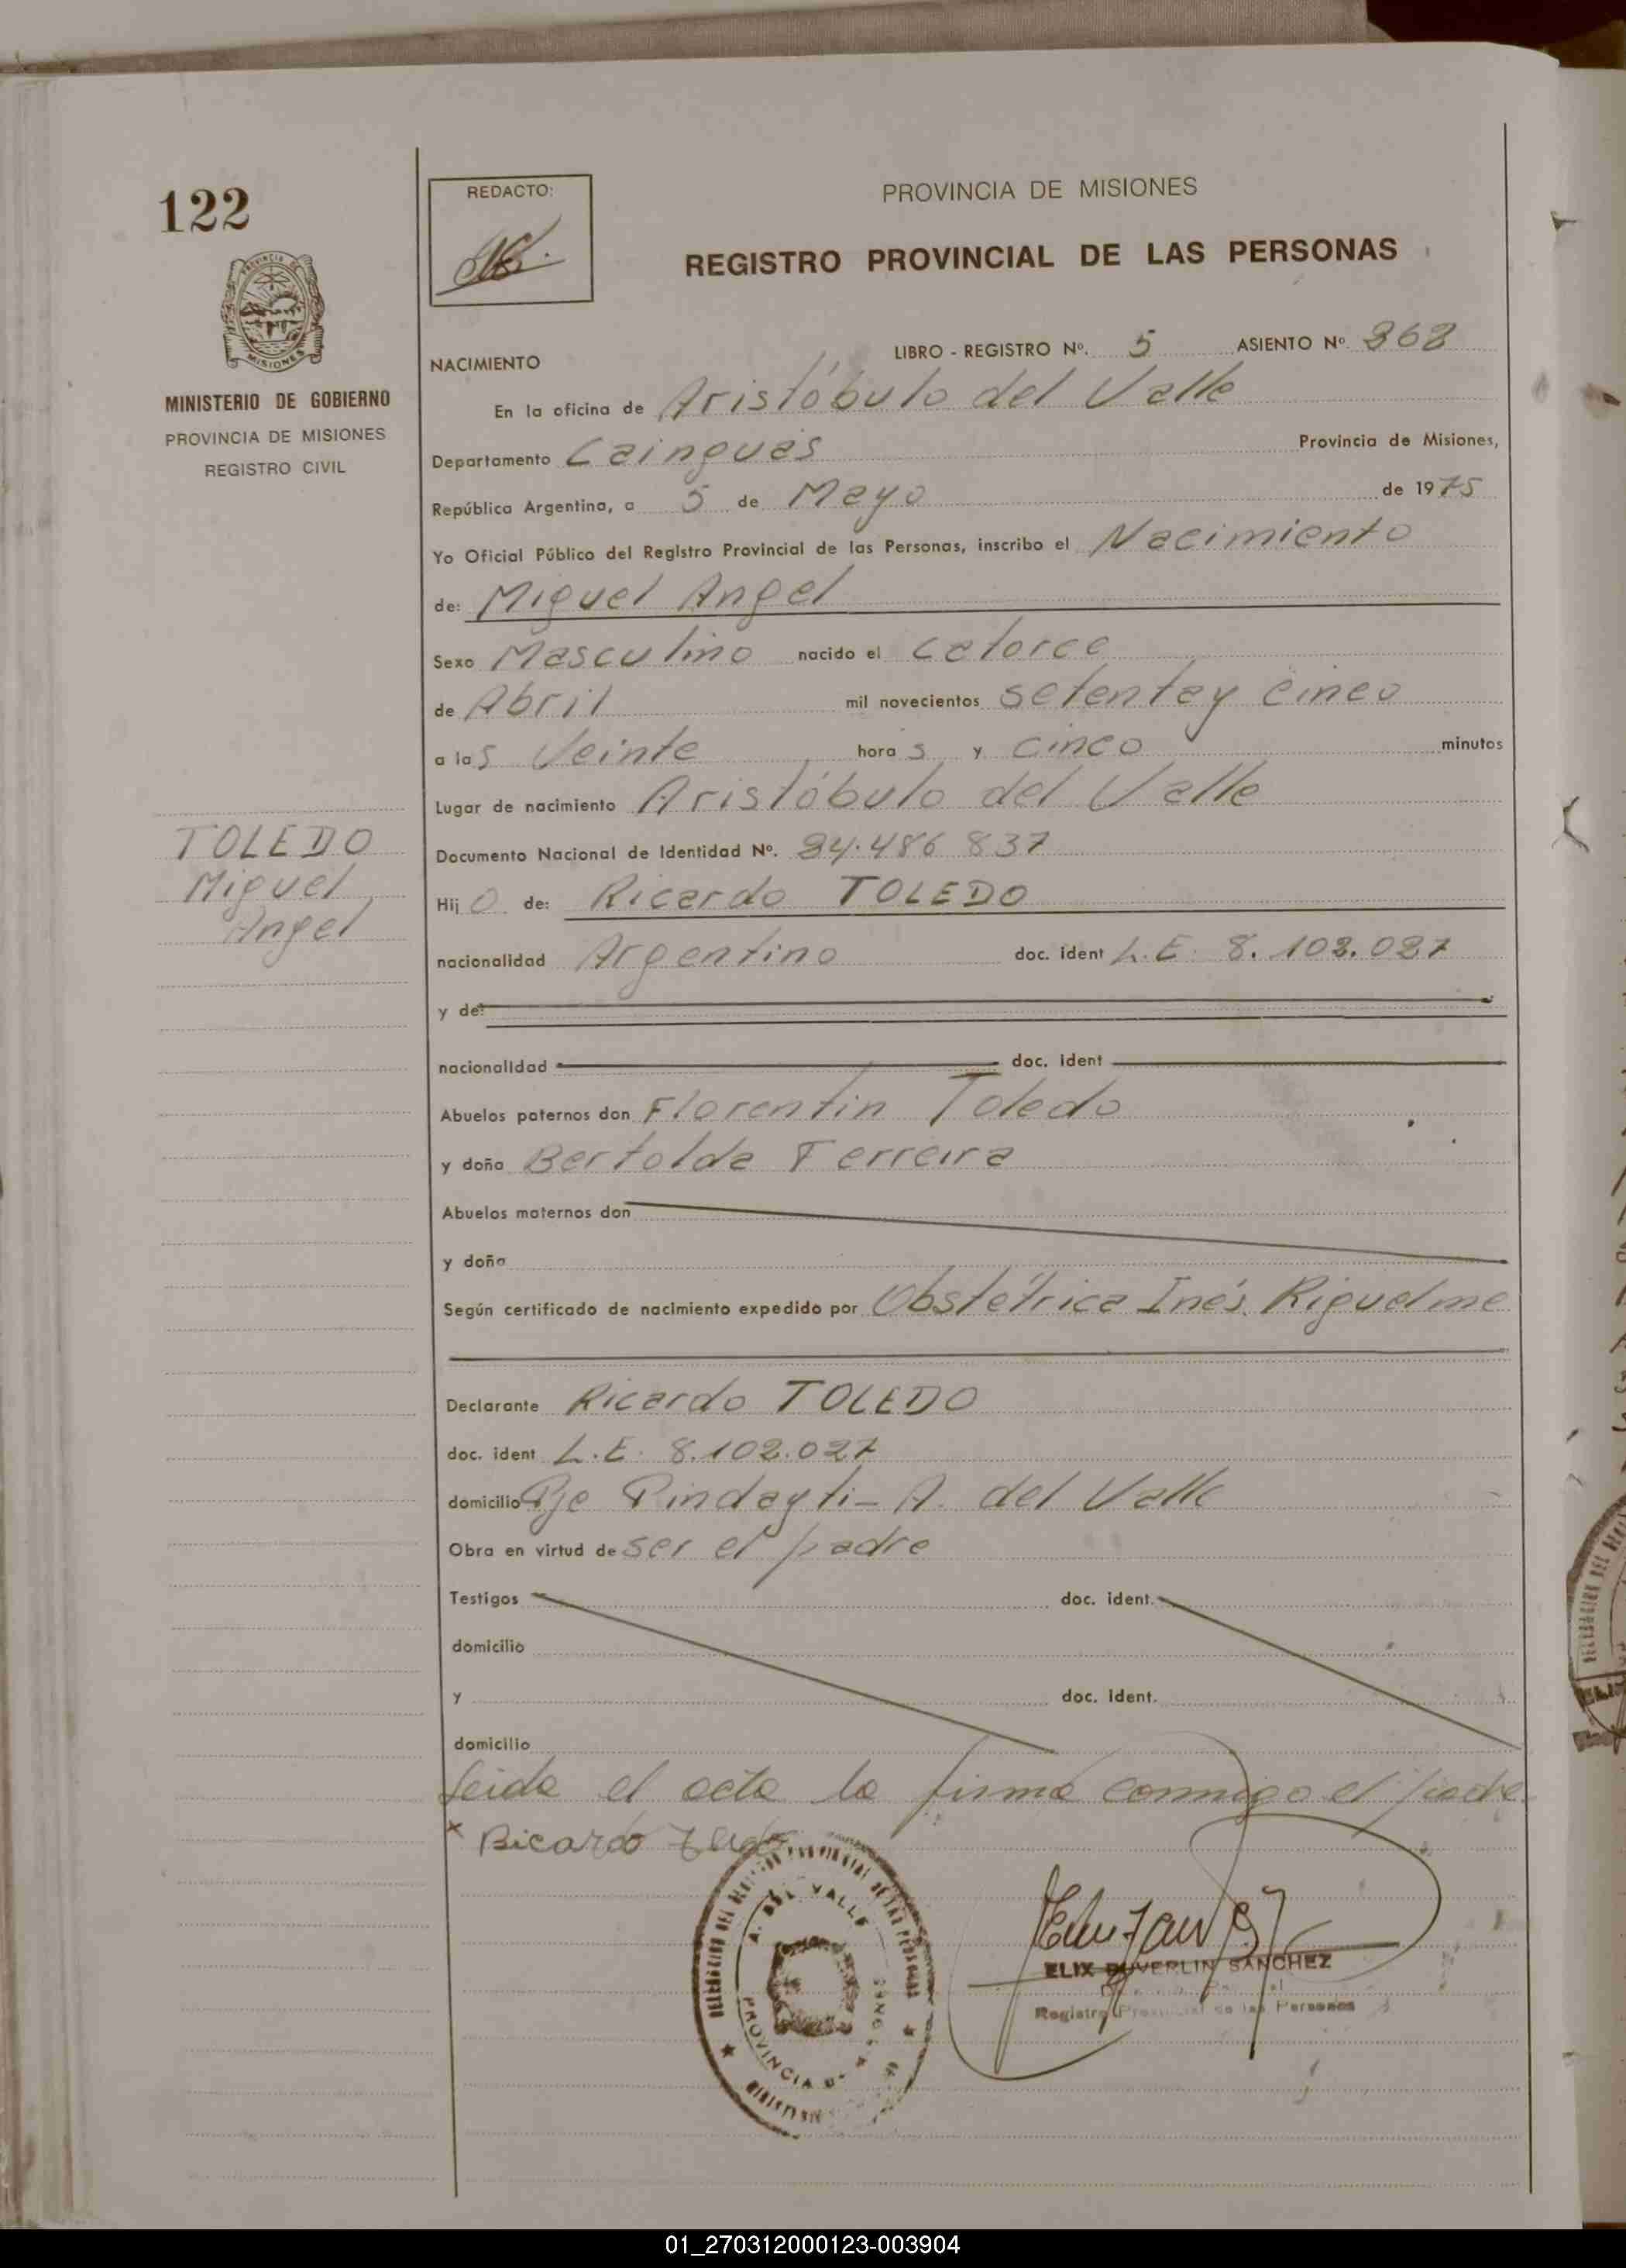 122
REDACTO:
PROVINCIA DE MISIONES
REGISTRO PROVINCIAL DE LAS PERSONAS
PROVINCIA DE
MISIONES
MINISTERIO DE GOBIERNO
PROVINCIA DE MISIONES
REGISTRO CIVIL
NACIMIENTO
LIBRO - REGISTRO Nº. 5 ASIENTO Nº 368
En la oficina de Aristóbulo del Valle
Departamento Cainguás Provincia de Misiones,
República Argentina, a 5 de Mayo de 1975
Yo Oficial Público del Registro Provincial de las Personas, inscribo el Nacimiento
de: Miguel Angel
Sexo Masculino nacido el catorce
de Abril mil novecientos setenta y cinco
a las Veinte horas y cinco minutos
Lugar de nacimiento Aristóbulo del Valle
TOLEDO
Miguel
Angel
Documento Nacional de Identidad Nº. 24.486 837
Hijo de: Ricardo TOLEDO
nacionalidad Argentino doc. ident L.E. 8.102.027
y de:
nacionalidad doc. ident
Abuelos paternos don Florentin Toledo
y doña Bertolda Ferreira
Abuelos maternos don
y doña
Según certificado de nacimiento expedido por Obstétrica Inés Riguelme
Declarante Ricardo TOLEDO
doc. ident L.E. 8.102.027
domicilio Pje Pindayti - A. del Valle
Obra en virtud de ser el padre
Testigos doc. ident.
domicilio
y doc. ident.
domicilio
Leida el acta la firma conmigo el padre.
x Ricardo
A. DEL VALLE
PROVINCIA DE
MISIONES
ELIX DUVERLIN SANCHEZ
Registro Provincial de las Personas
01_270312000123-003904